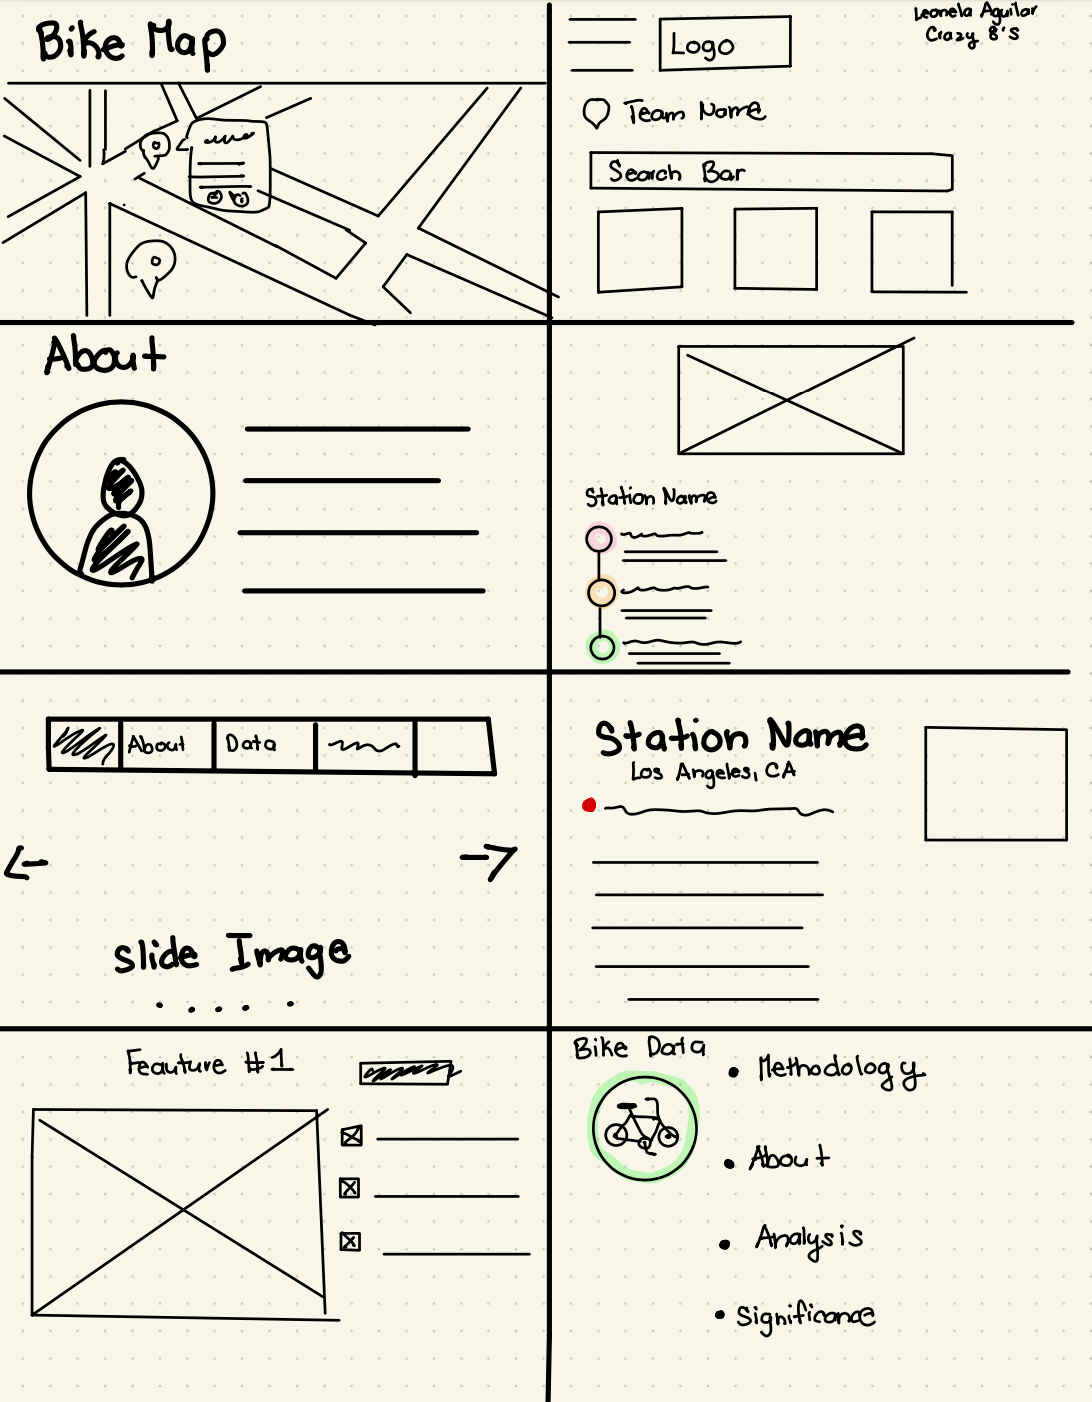 Bike Map
Leonela Aguilar
Crazy 8's
Logo
Team Name
Search Bar
About
Station Name
About
Data
slide Image
Station Name
Los Angeles, CA
Feauture #1
Bike Data
Methodology
About
Analysis
Significance